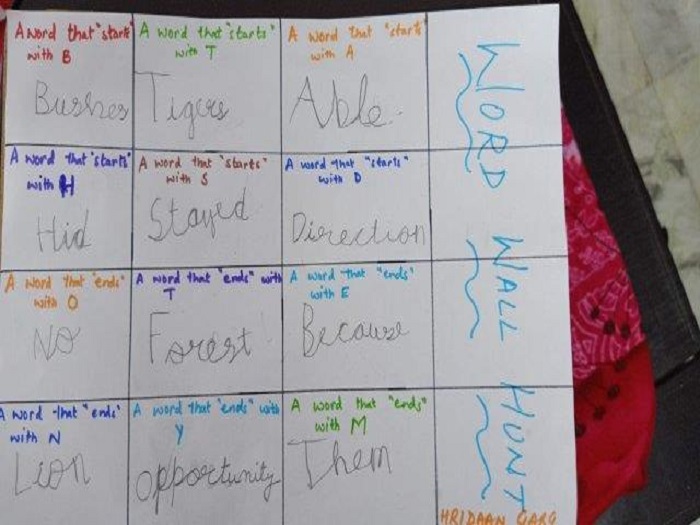 A word that "starts" with B
Bushes
A word that "starts" with T
Tigers
A word that "starts" with A
Able.
A word that "starts" with H
Hid
A word that "starts" with S
Stayed
A word that "starts" with D
Direction
A word that "ends" with O
No
A word that "ends" with T
Forest
A word that "ends" with E
Because
A word that "ends" with N
Lion
A word that "ends" with Y
opportunity
A word that "ends" with M
Them
WORD WALL HUNT
HRIDAAN GARG